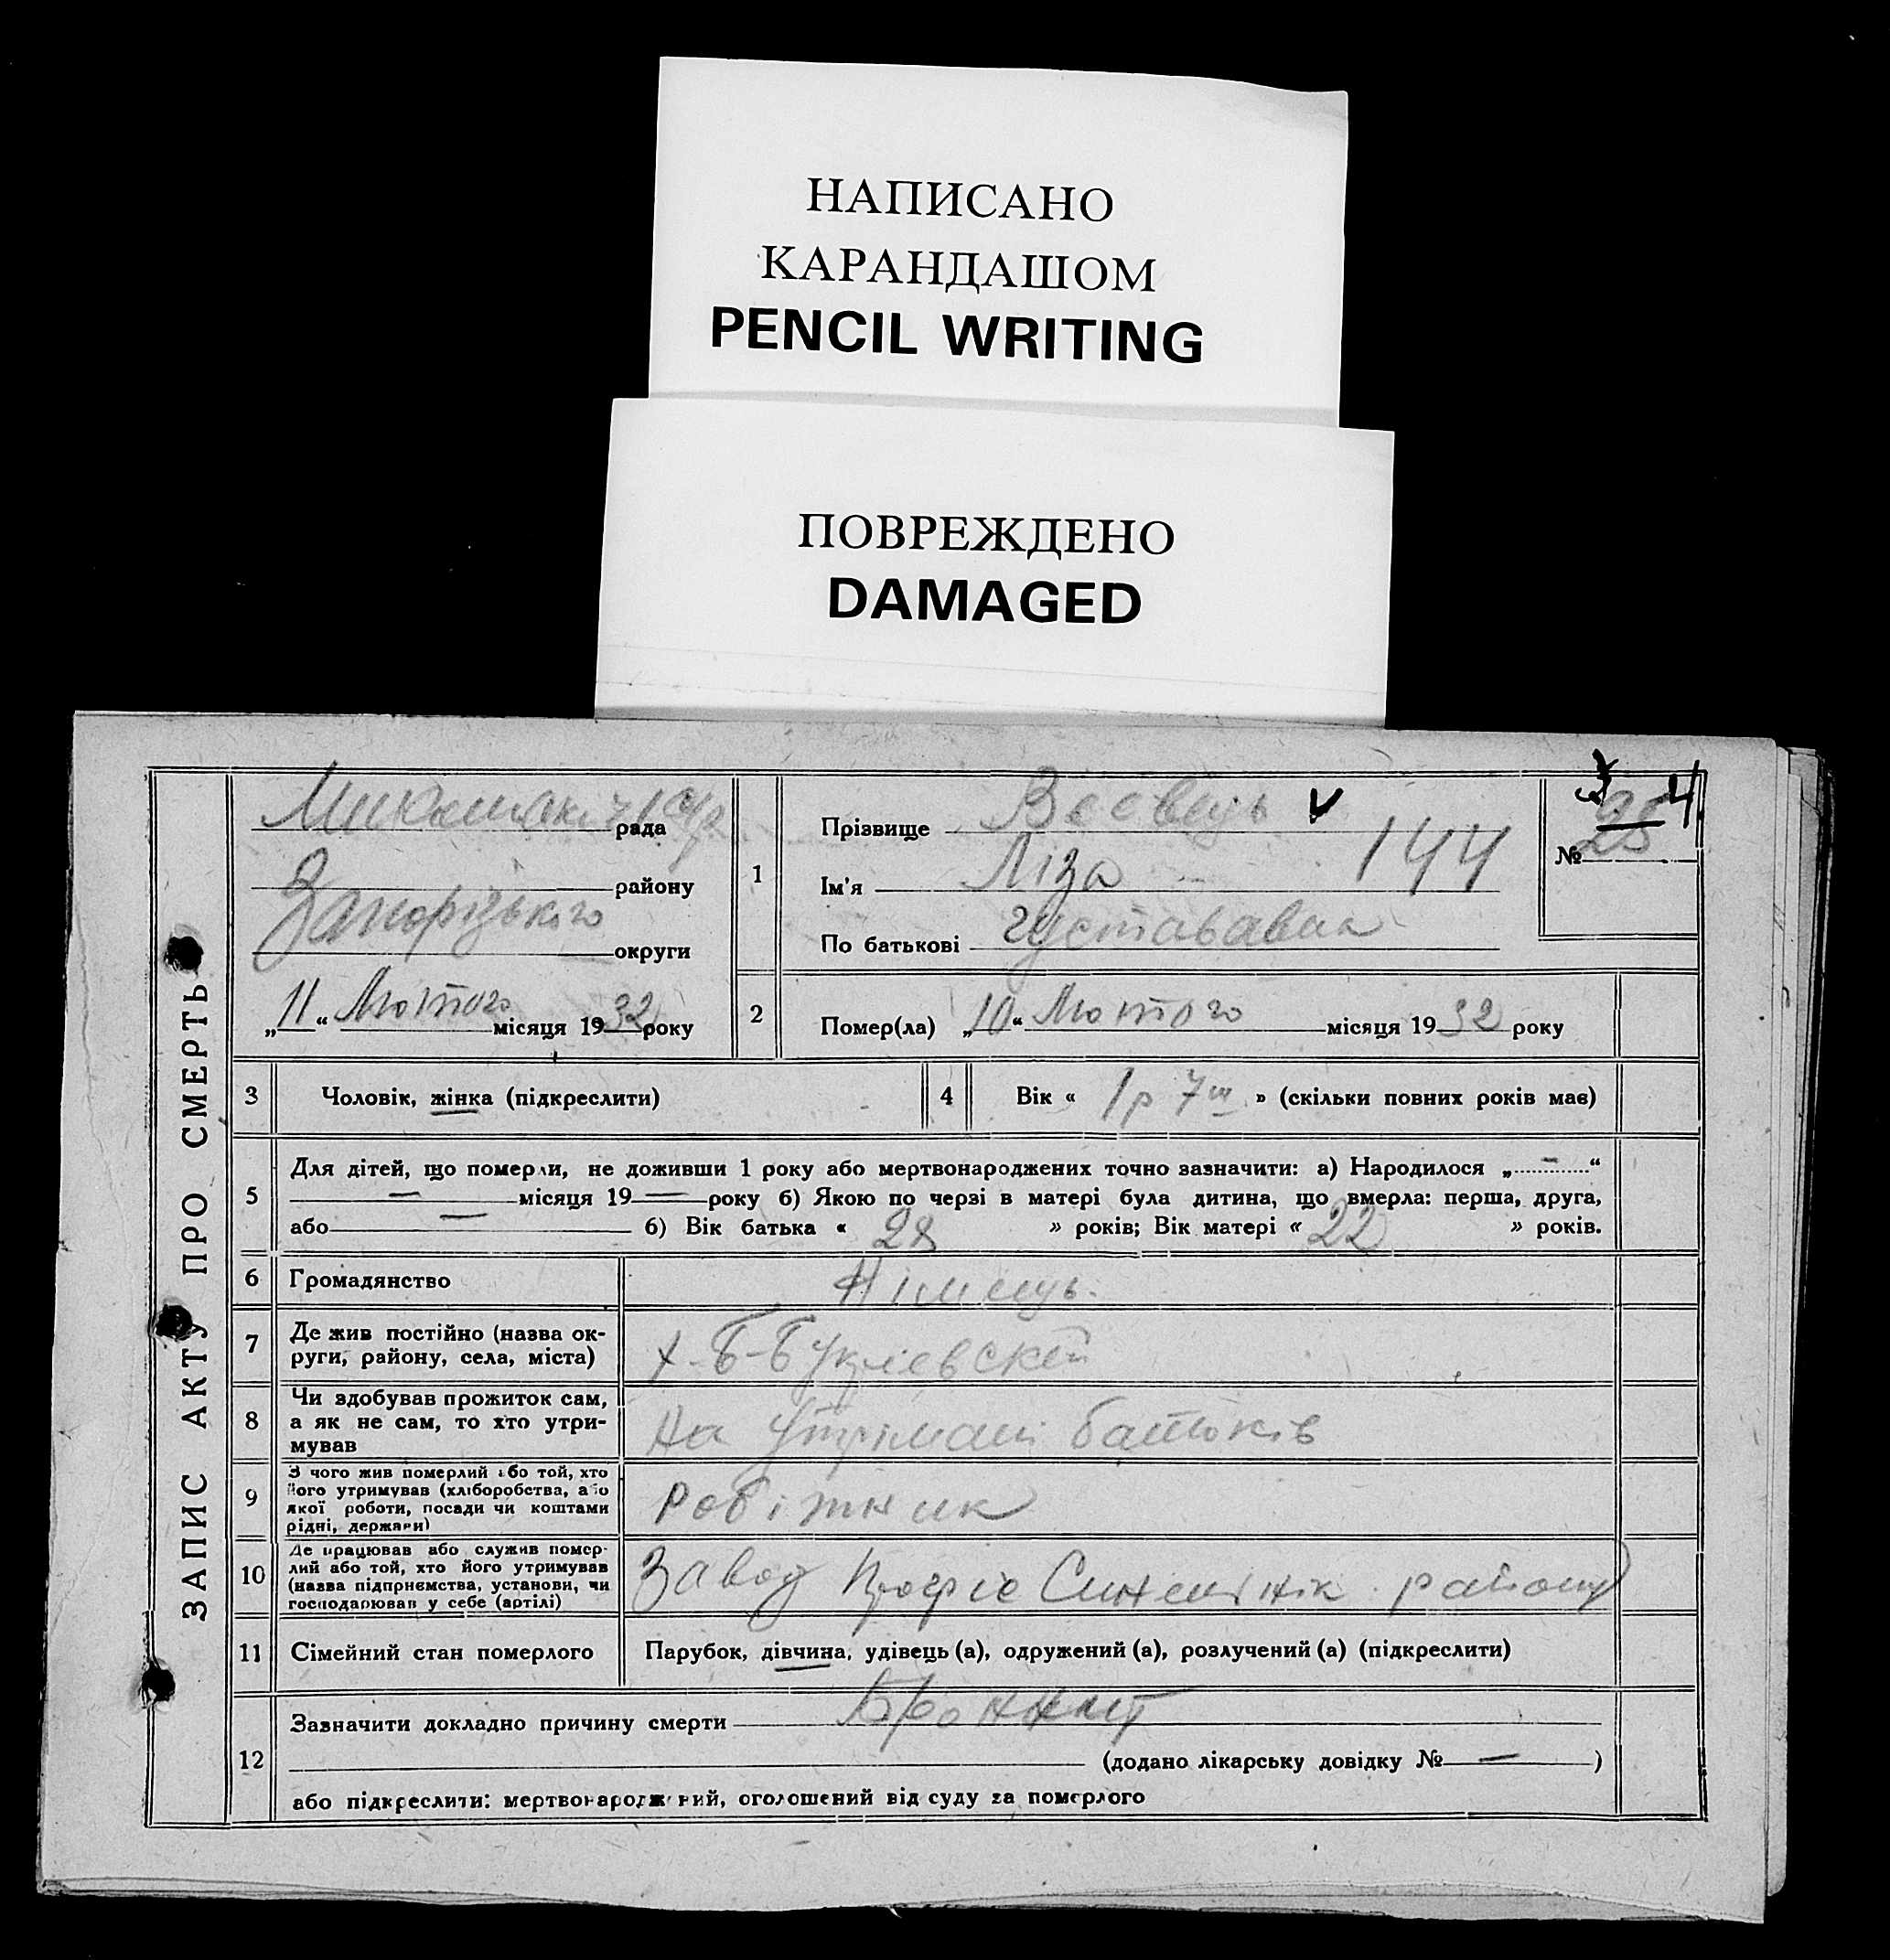 НАПИСАНО
КАРАНДАШОМ
PENCIL WRITING
ПОВРЕЖДЕНО
DAMAGED
ЗАПИС АКТУ ПРО СМЕРТЬ
рада
району
Запорізького
округи
„11“ Лютого місяця 1932 року
1
Прізвище
Ім'я Ліза 144
По батькові Густававна
№ 25
4
2
Помер(ла) „10“ Лютого місяця 1932 року
3 Чоловік, жінка (підкреслити)
4 Вік « 1р 7м » (скільки повних років має)
5 Для дітей, що померли, не доживши 1 року або мертвонароджених точно зазначити: а) Народилося „-“
— місяця 19— року б) Якою по черзі в матері була дитина, що вмерла: перша, друга,
або — б) Вік батька « 28 » років; Вік матері « 22 » років.
6 Громадянство Німець.
7 Де жив постійно (назва ок-
руги, району, села, міста)
8 Чи здобував прожиток сам,
а як не сам, то хто утри-
мував
На утрімані батьків
9 З чого жив померлий або той, хто
його утримував (хліборобства, або
якої роботи, посади чи коштами
рідні, держави)
Робітник
10 Де працював або служив помер-
лий або той, хто його утримував
(назва підприємства, установи, чи
господарював у себе (артілі)
Завод району
11 Сімейний стан померлого Парубок, дівчина, удівець (а), одружений (а), розлучений (а) (підкреслити)
12 Зазначити докладно причину смерти Бронхит
(додано лікарську довідку № — )
або підкреслити: мертвонароджений, оголошений від суду за померлого